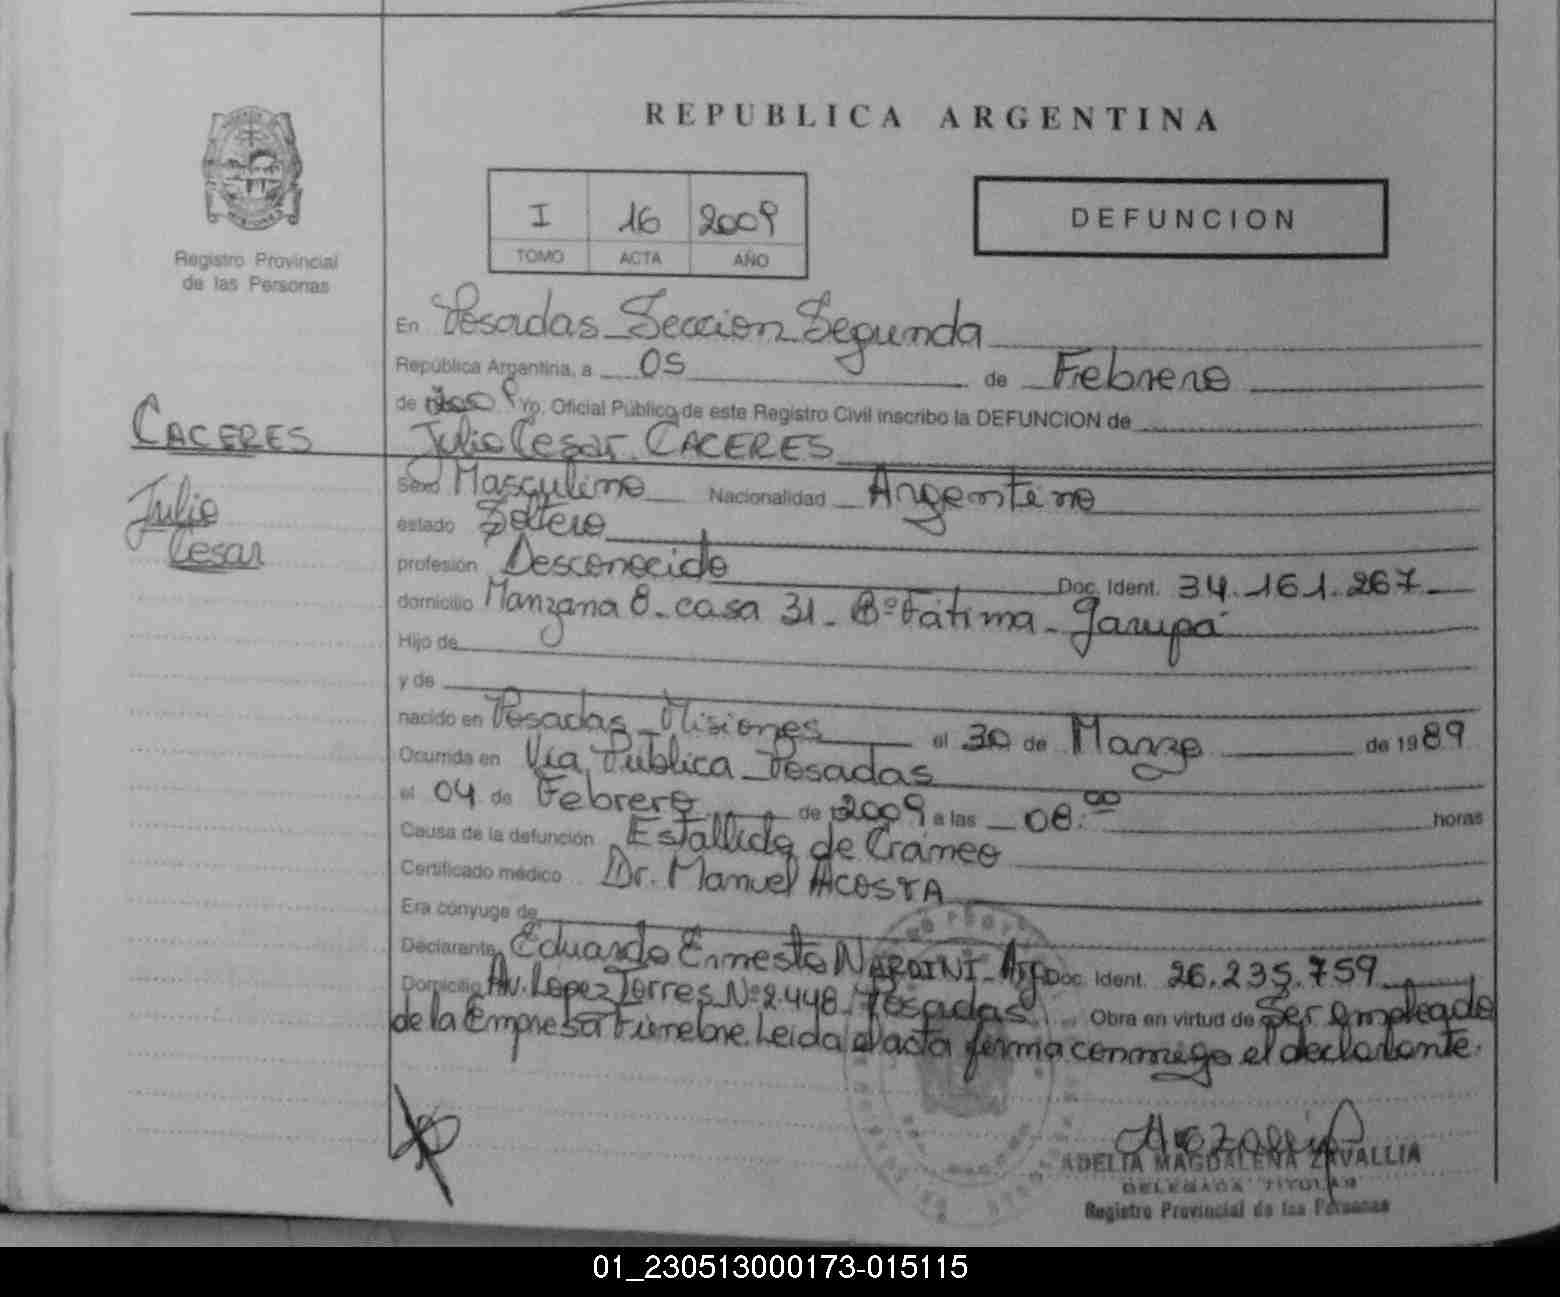 REPUBLICA ARGENTINA
I 16 2009
TOMO ACTA AÑO
DEFUNCION
Registro Provincial
de las Personas
En Posadas Seccion Segunda
República Argentina, a 05 de Febrero
de 2009 Yo, Oficial Público de este Registro Civil inscribo la DEFUNCION de
CACERES
Julio Cesar CACERES
Julio
Cesar
Sexo Masculino Nacionalidad Argentino
estado Soltero
profesión Desconocido Doc. Ident. 34.161.267
domicilio Manzana 8 - casa 31 - Bº Fátima - Garupá
Hijo de
y de
nacido en Posadas Misiones el 30 de Marzo de 1989
Ocurrida en Via Pública Posadas
el 04 de Febrero de 2009 a las 08:00 horas
Causa de la defunción Estallido de Cráneo
Certificado médico Dr. Manuel ACOSTA
Era cónyuge de
Declarante Eduardo Ernesto NARDINI - Arg Doc. Ident. 26.235.759
Domicilio Av. Lopez Torres Nº 2.448 Posadas Obra en virtud de Ser empleado
de la Empresa Fúnebre. Leida el acta firma conmigo el declarante.
ADELIA MAGDALENA ZAVALLIA
DELEGADA TITULAR
Registro Provincial de las Personas
01_230513000173-015115